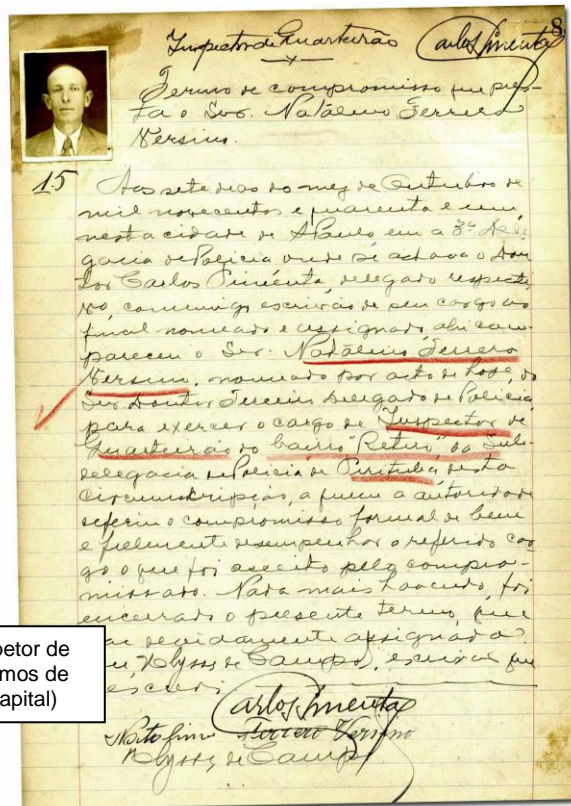 8
Inspector de Quarteirão Carlos Pimenta
Termo de compromisso que pres-
ta o Snr. Natálino Ferrero
Versino.
15
Aos sete dias do mez de Outubro de
mil novecentos e quarenta e um,
nesta cidade de S. Paulo em a 3ª Dele
gacia de Policia onde se achava o Dou
tor Carlos Pimenta, delegado respecti
vo, commigo escrivão de seu cargo ao
final nomeado e assignado, ahi com-
pareceu o Snr. Natálino Ferrero
Versino, nomeado por acto de hoje, do
Snr. Doutor Terceiro Delegado de Policia
para exercer o cargo de Inspector de
Quarteirão do bairro "Retiro", da Sub-
delegacia de Policia de Pirituba desta
circumskripção, a quem a autoridade
deferiu o compromisso formal de bem
e fielmente desempenhar o referido car
go o que foi acceito pelo compro-
missado. Nada mais havendo, foi
encerrado o presente termo, que
vae devidamente assignado.
Eu, Ulysses de Campos, escrivão que
escrevi
Carlos Pimenta
Natolino Ferrero Versino
Ulysses de Campos
petor de
mos de
apital)